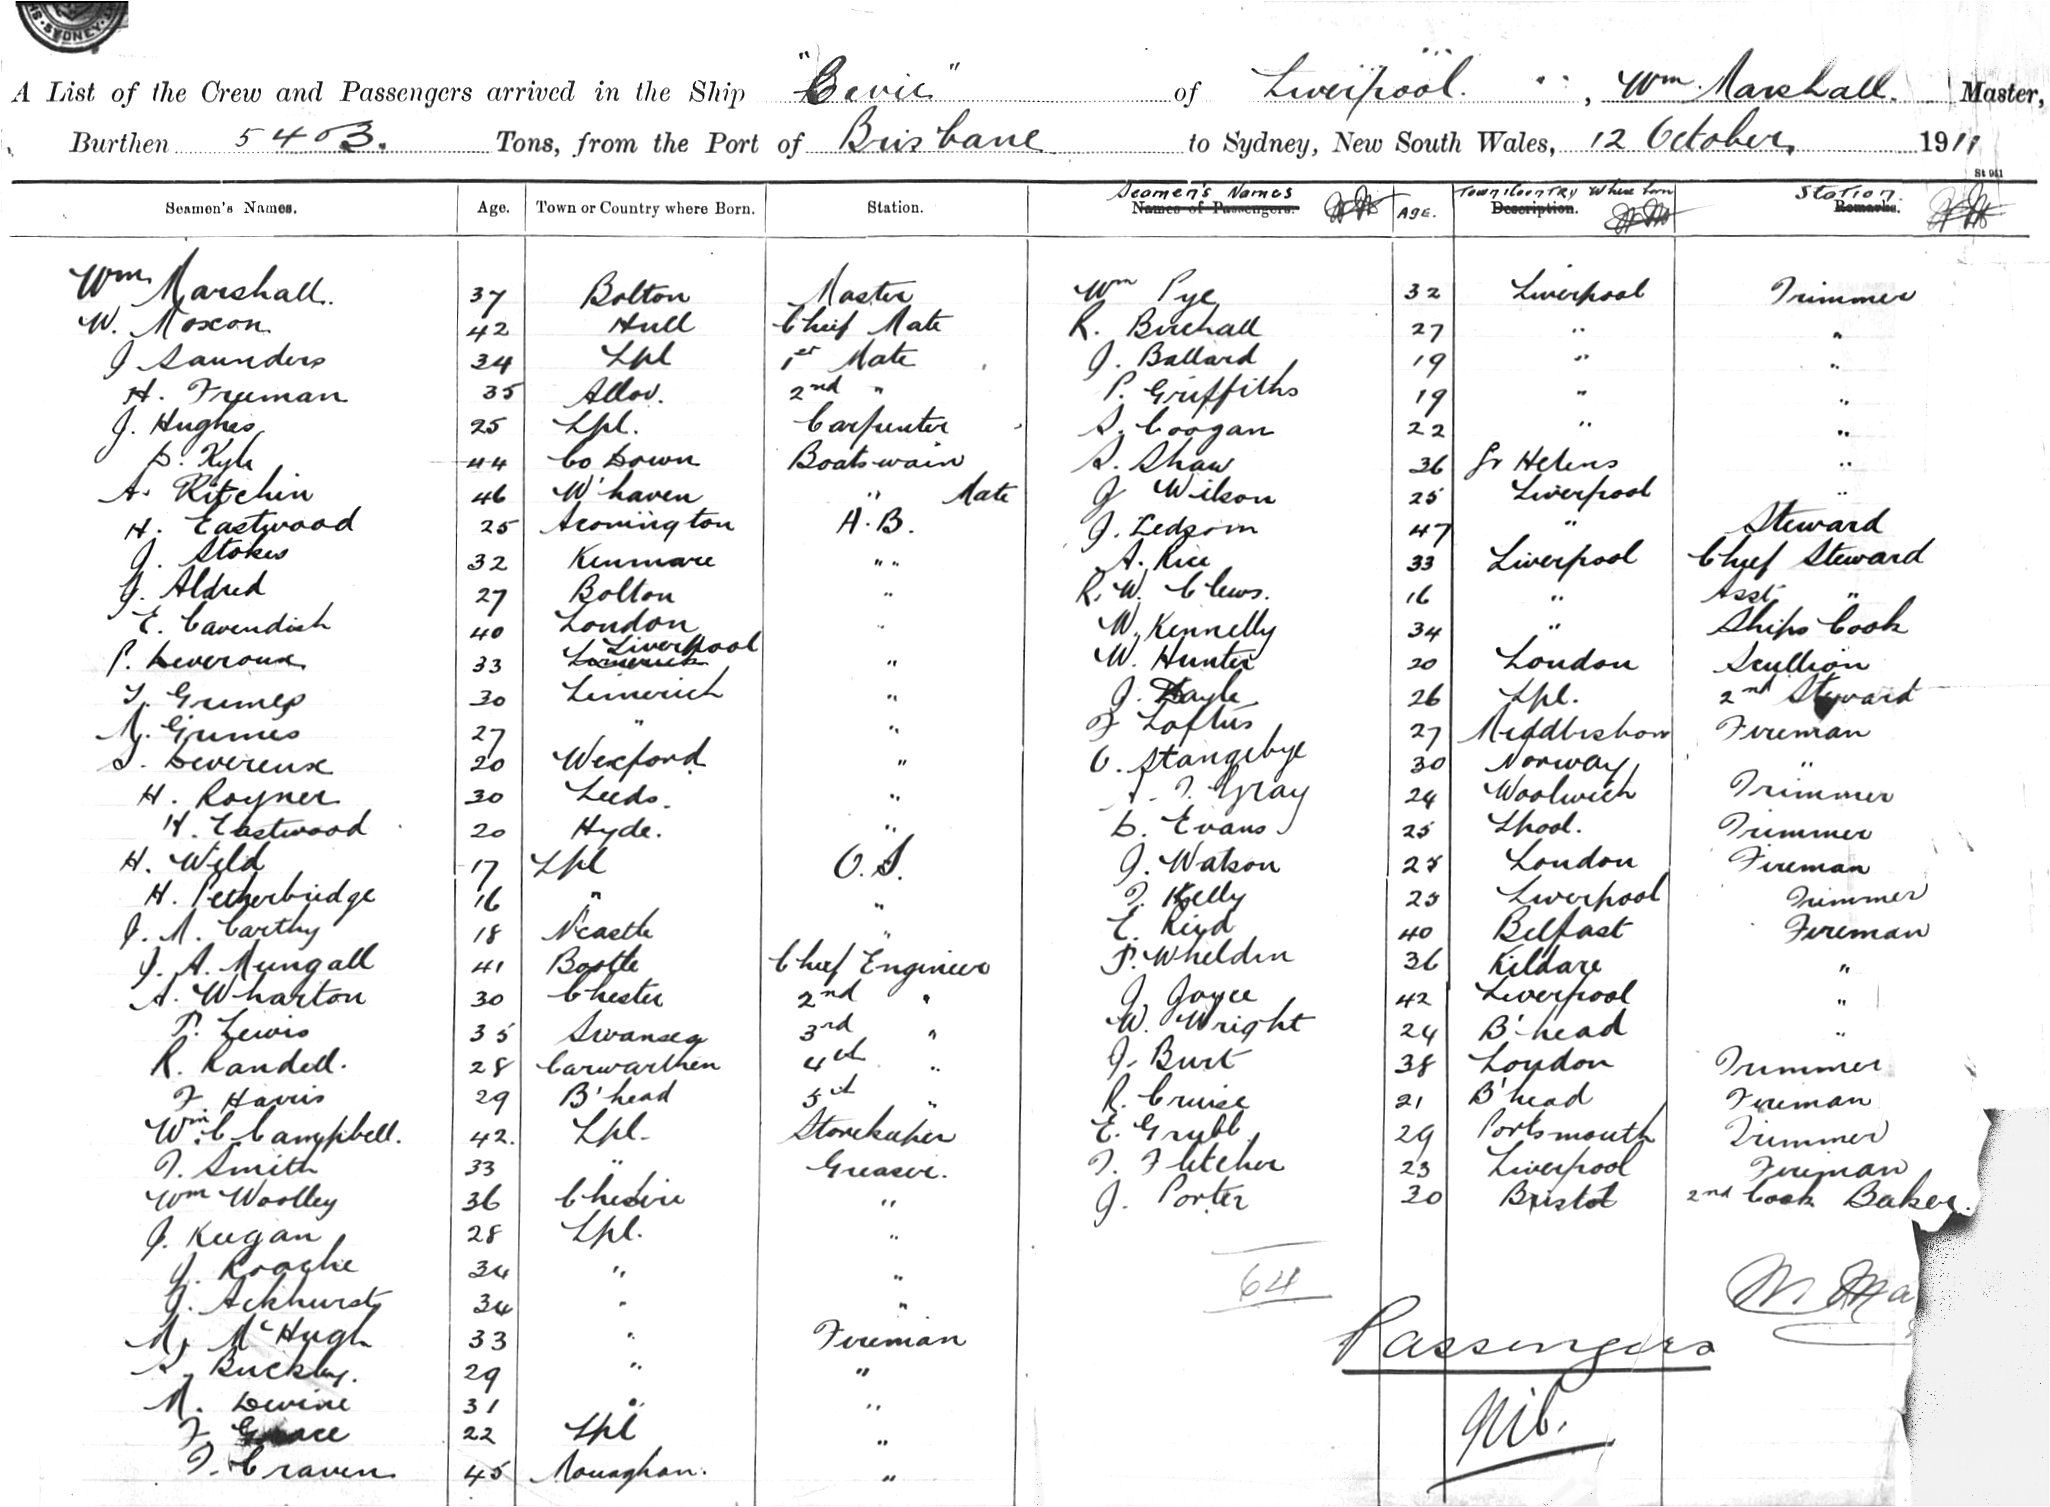 SYDNEY
A List of the Crew and Passengers arrived in the Ship "Cevic" of Liverpool. , Wm. Marshall. Master,
Burthen 5403. Tons, from the Port of Brisbane to Sydney, New South Wales, 12 October, 1911
St 961
Seamen's Names. Age. Town or Country where Born. Station. Seamen's Names Names of Passengers. AGE. Town & Country Where born Description. Station. Remarks.
Wm Marshall. 37 Bolton Master Wm Pye 32 Liverpool Trimmer
W. Moxon 42 Hull Chief Mate R. Birchall 27 " "
J Saunders 34 Lpl 1st Mate J. Ballard 19 " "
H. Freeman 35 Alloa. 2nd " P. Griffiths 19 " "
J. Hughes 25 Lpl. Carpenter S. Coogan 22 " "
D. Kyle 44 Co Down Boatswain S. Shaw 36 St Helens "
A. Kitchin 46 W'haven " Mate J Wilson 25 Liverpool "
H. Eastwood 25 Accrington A.B. J. Ledsom 47 " Steward
J. Stokes 32 Kenmare " " A. Rice 33 Liverpool Chief Steward
J. Aldred 27 Bolton " R. W. Clews. 16 " Asst. "
E. Cavendish 40 London " W. Kennelly 34 " Ships Cook
P. Deveroux 33 Limerick Liverpool " W. Hunter 20 London Scullion
T. Grimes 30 Limerick " J. Hayle 26 Lpl. 2nd Steward
M. Grimes 27 " " F Loftus 27 Middlesboro Fireman
S. Devereux 20 Wexford " O. Stangebye 30 Norway "
H. Rayner 30 Leeds. " A. T. Gray 24 Woolwich Trimmer
H. Eastwood 20 Hyde. " D. Evans 25 Lpool. Trimmer
H. Weld 17 Lpl O.S. J. Watson 28 London Fireman
H. Petherbridge 16 " " T. Kelly 25 Liverpool Trimmer
J. M. Carthy 18 N'castle " E. Reid 40 Belfast Fireman
J. A. Mungall 41 Bootle Chief Engineer P. Wheldon 36 Kildare "
A. Wharton 30 Chester 2nd " J. Joyce 42 Liverpool "
P. Lewis 35 Swansea 3rd " W. Wright 24 B'head "
R. Randell. 28 Carmarthen 4th " J. Burt 38 London Trimmer
F. Harris 29 B'head 5th " R. Cruise 21 B'head Fireman
Wm. C Campbell. 42. Lpl. Storekeeper E. Grubb 29 Portsmouth Trimmer
T. Smith 33 " Greaser. T. Fletcher 23 Liverpool Fireman
Wm Woolley 36 Cheshire " J. Porter 30 Bristol 2nd Cook Baker.
J. Keegan 28 Lpl. "
J. Roache 34 " " 64
J. Ackhurst 34 " "
M. McHugh 33 " Fireman Passengers
S. Buckley. 29 " "
M. Devine 31 " " Nil.
F. Grace 22 Lpl "
T. Craven 45 Monaghan. "